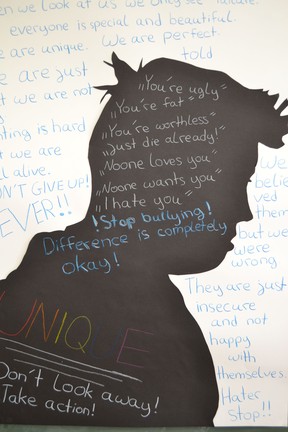 en we look at us we only see failure.
everyone is special and beautiful.
e are unique. We are perfect
told
e are just
t we are not
hting is hard
t we are
ll alive.
ON'T GIVE UP!
EVER!!
„You're ugly“
„You're fat“
„You're worthless“
„Just die already!“
„Noone loves you“
„Noone wants you“
„I hate you“
!Stop bullying!
Difference is completely
okay!
UNIQ E
Don't look away!
Take action!
We
belie
ved
them
but we
were
wrong
They are just
insecure
and not
happy
with
themselves.
Hater
Stop!!